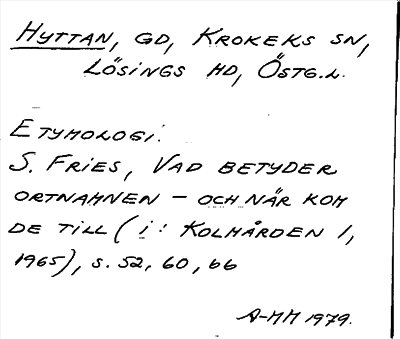 HYTTAN, GD, KROKEKS SN,
LÖSINGS HD, ÖSTG.L.
ETYMOLOGI.
S. FRIES, VAD BETYDER
ORTNAMNEN – OCH NÄR KOM
DE TILL (i: KOLMÅRDEN 1,
1965), s. 52, 60, 66
A-MM 1979.